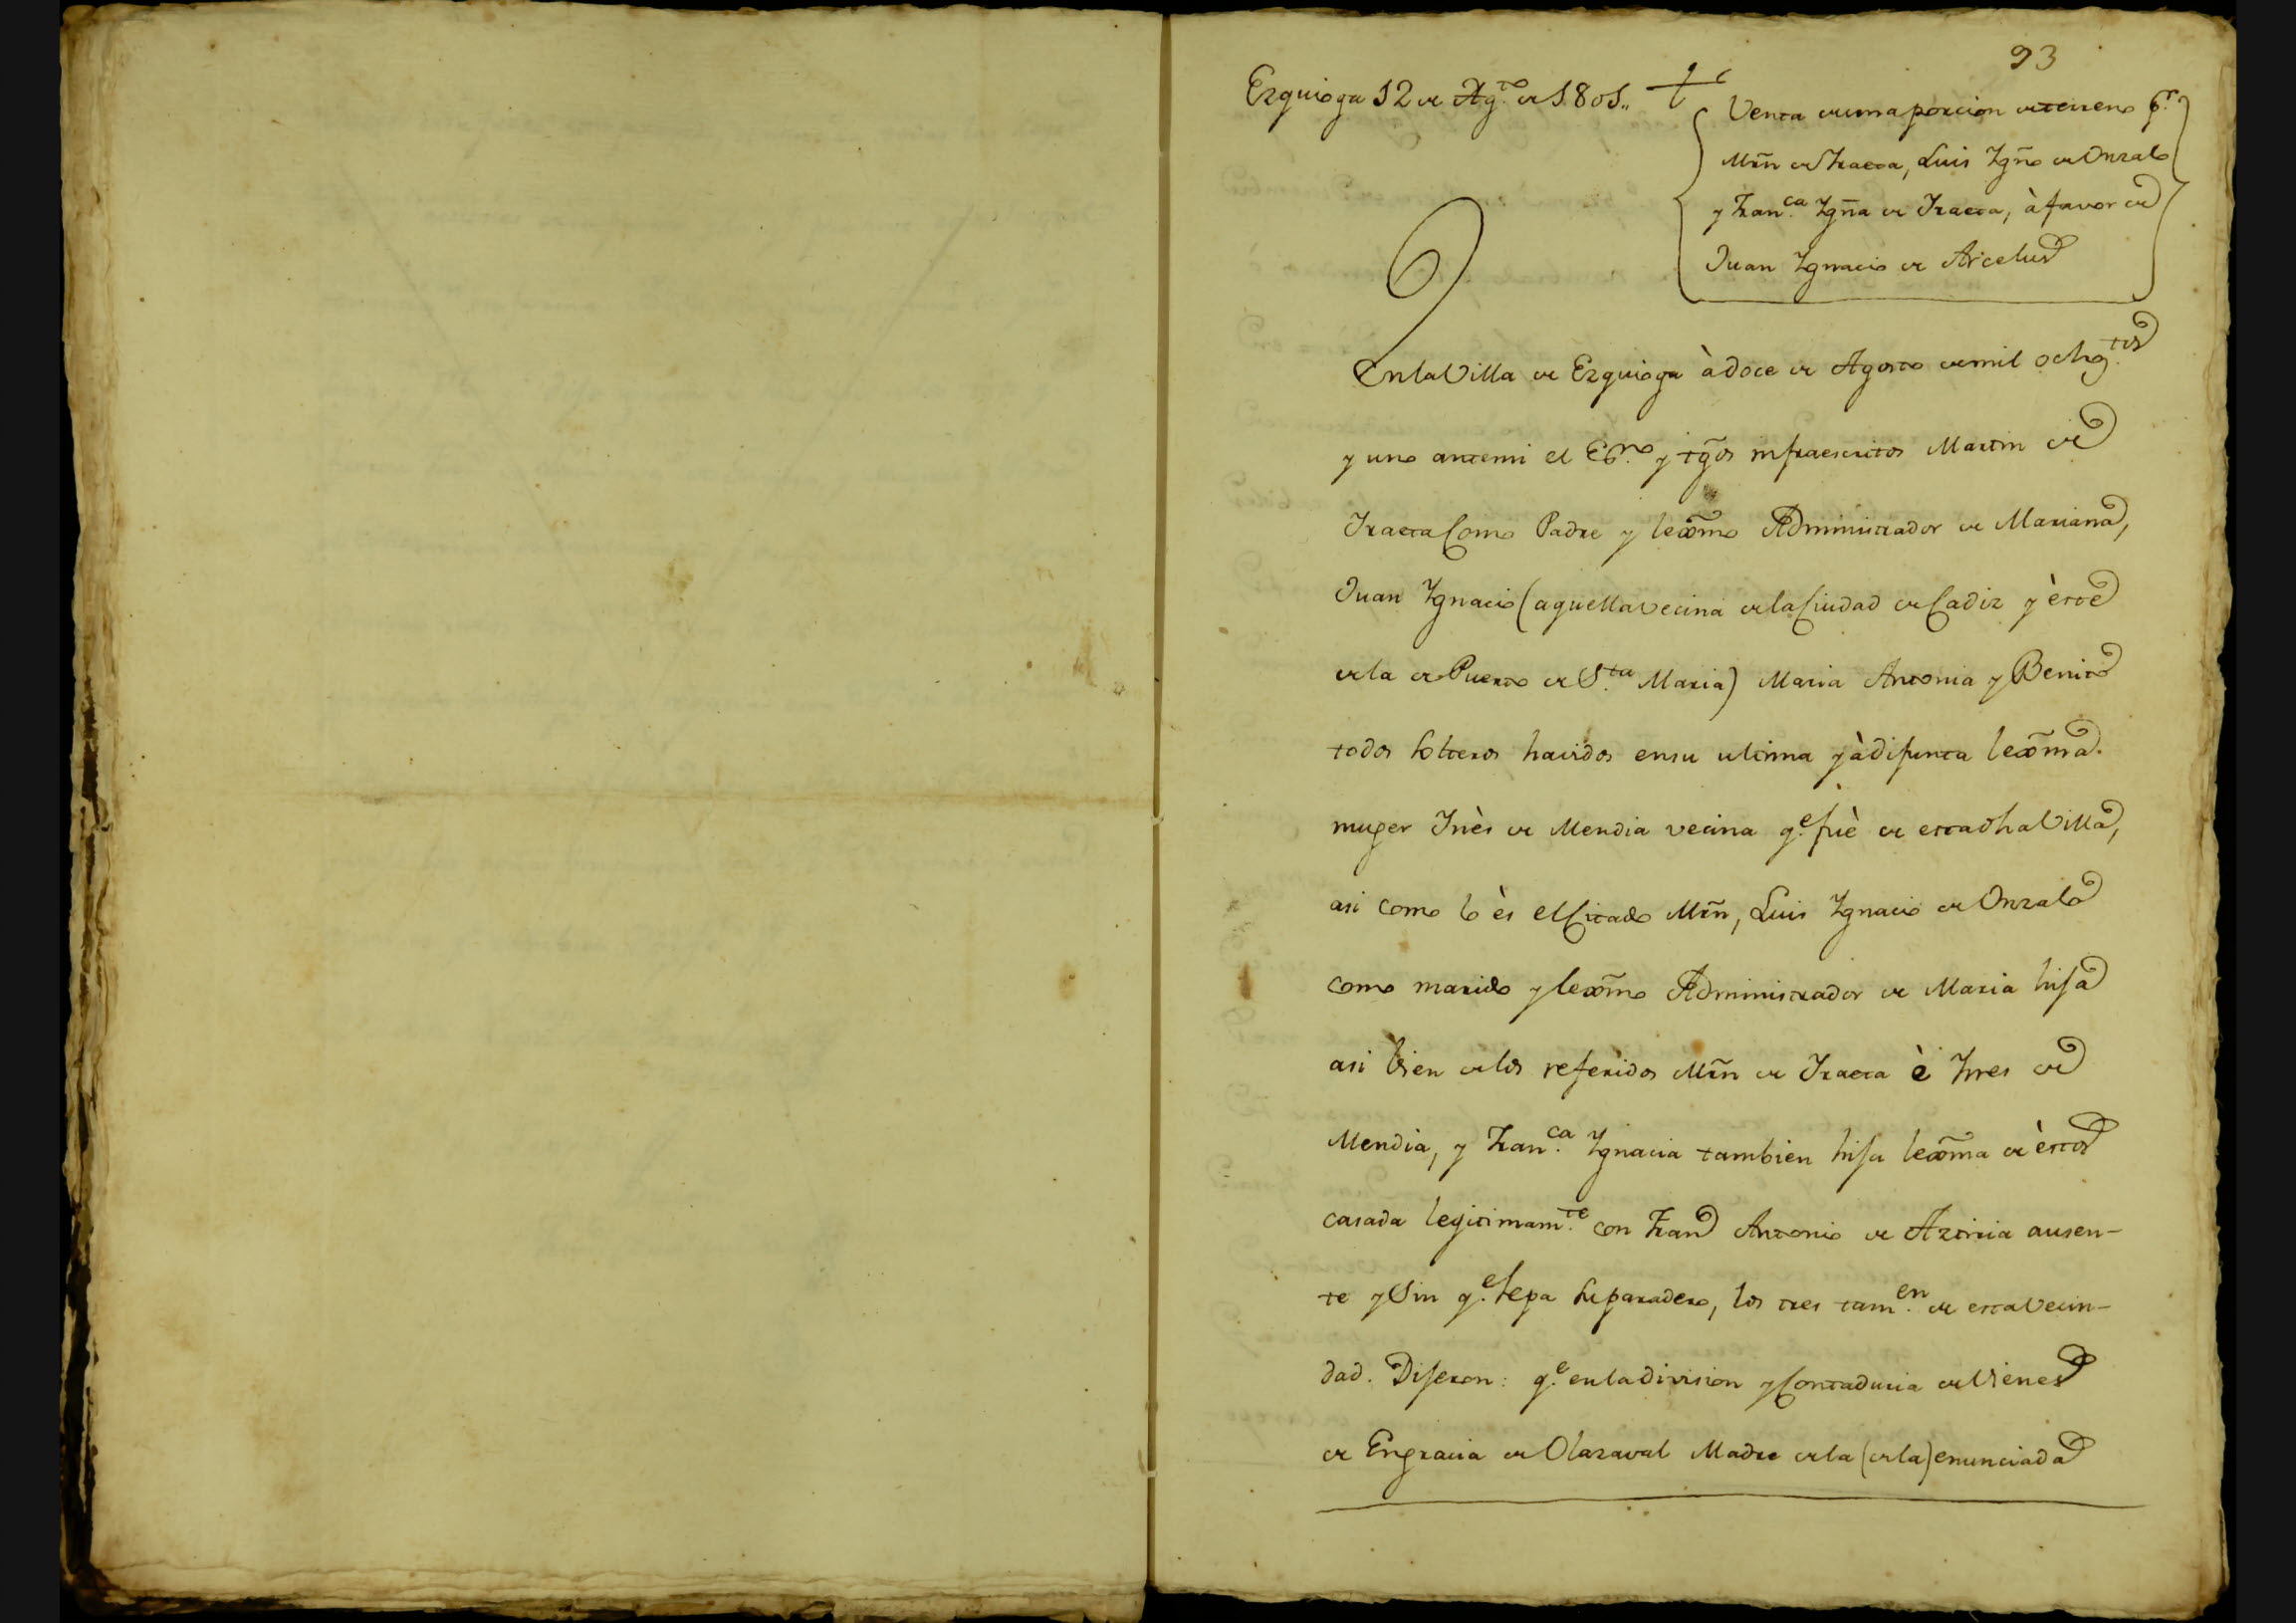 93
Ezquioga 12 de Ag.to de 1801.,
Venta de una porcion de terreno p.r
Mrñ de Iraeta, Luis Ygñò de Onzalo
y Fran.ca Ygña de Iraeta, à favor de
Juan Ygnacio de Arcelus
En la Villa de Ezquioga à doce de Agosto de mil ochoz.tos
y uno antemi el Esno y tg̃os infraescritos Martin de
Iraeta Como Padre y lexm̃o Administrador de Mariana,
Juan Ygnacio (aquella vecina de la Ciudad de Cadiz y èste
de la de Puerto de S.ta Maria) Maria Antonia y Benito
todos solteros havidos en su ultima yà difunta lexm̃a.
muger Inès de Mendia vecina q.e fuè de esta dha Villa,
asi como lo ès el Citado Mrñ, Luis Ygnacio de Onzalo
como marido y lexm̃o Administrador de Maria hija
asi bien de los referidos Mrñ de Iraeta è Ynes de
Mendia, y Fran.ca Ygnacia tambien hija lexm̃a de èstos
casada legitimam.te con Fran Antonio de Aztiria ausen-
te y Sin q.e sepa su paradero, los tres tam.en de esta vecin-
dad. Dijeron: q.e en la division y Contaduria de Vienes
de Engracia de Olazaval Madre de la (de la) enunciada